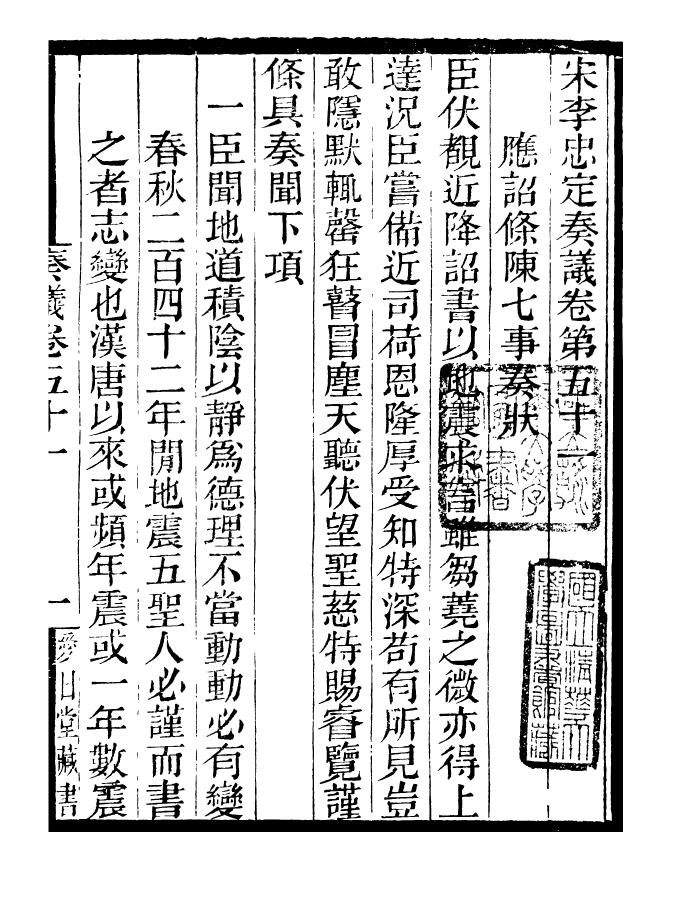 宋李忠定奏議卷第五十一
應詔條陳七事奏狀
臣伏覩近降詔書以地震求言雖芻蕘之微亦得上
達況臣嘗備近司荷恩隆厚受知特深苟有所見豈
敢隱默輒罄狂瞽冒塵天聽伏望聖慈特賜睿覽謹
條具奏聞下項
一臣聞地道積陰以靜爲德理不當動動必有變
春秋二百四十二年閒地震五聖人必謹而書
之者志變也漢唐以來或頻年震或一年數震
奏議卷五十一
一
愛日堂藏書
國立清華大學圖書館藏